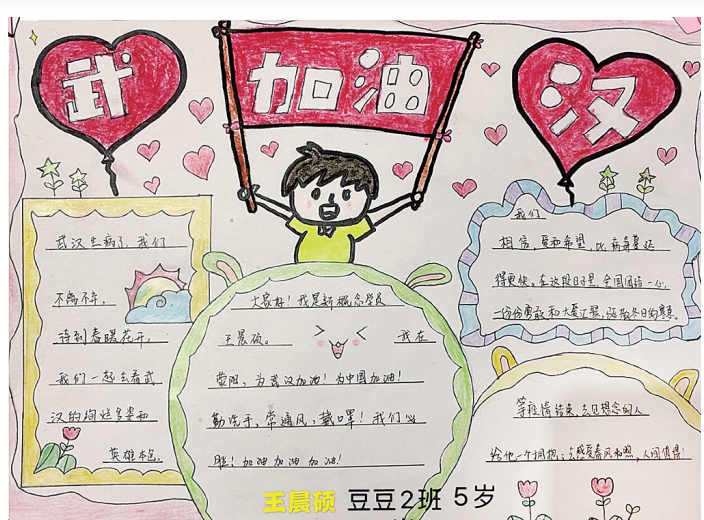 武
加油
汉
武汉生病了,我们
不离不弃,
待到春暖花开,
我们一起去看武
汉的绚烂多姿和
英雄本色。
大家好!我是新概念学员
王晨硕。 我在
荥阳,为武汉加油!为中国加油!
勤洗手,常通风,戴口罩!我们必
胜!加油加油加油!
我们
相信,爱和希望,比病毒蔓延
得更快,在这段日子里,全国团结一心,
一份份勇敢和大爱汇聚,驱散冬日的寒意。
等疫情结束,去见想念的人
给他一个拥抱;去感受春风和煦,人间值得!
王晨硕 豆豆2班 5岁